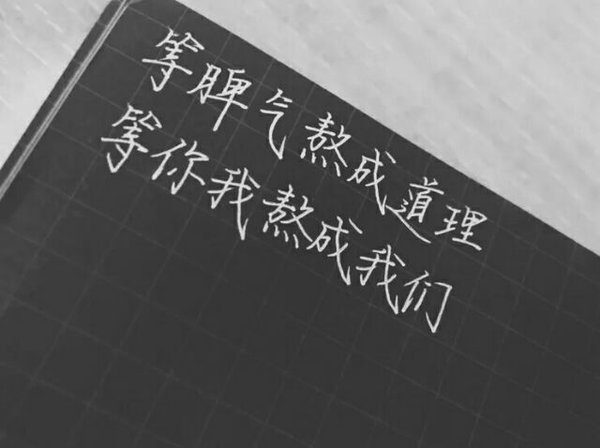 等脾气熬成道理
等你我熬成我们